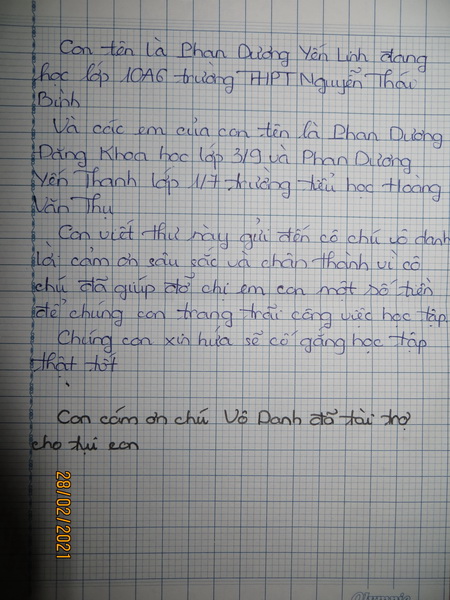 Con tên là Phan Dương Yến Linh đang
học lớp 10A6 trường THPT Nguyễn Thái
Bình
Và các em của con tên là Phan Dương
Đăng Khoa học lớp 3/9 và Phan Dương
Yến Thanh lớp 1/7 trường tiểu học Hoàng
Văn Thụ
Con viết thư này gửi đến cô chú vô danh
lời cảm ơn sâu sắc và chân thành vì cô
chú đã giúp đỡ chị em con một số tiền
để chúng con trang trãi công việc học tập
Chúng con xin hứa sẽ cố gắng học tập
thật tốt
Con cám ơn chú Vô Danh đã tài trợ
cho tụi con
28/02/2021